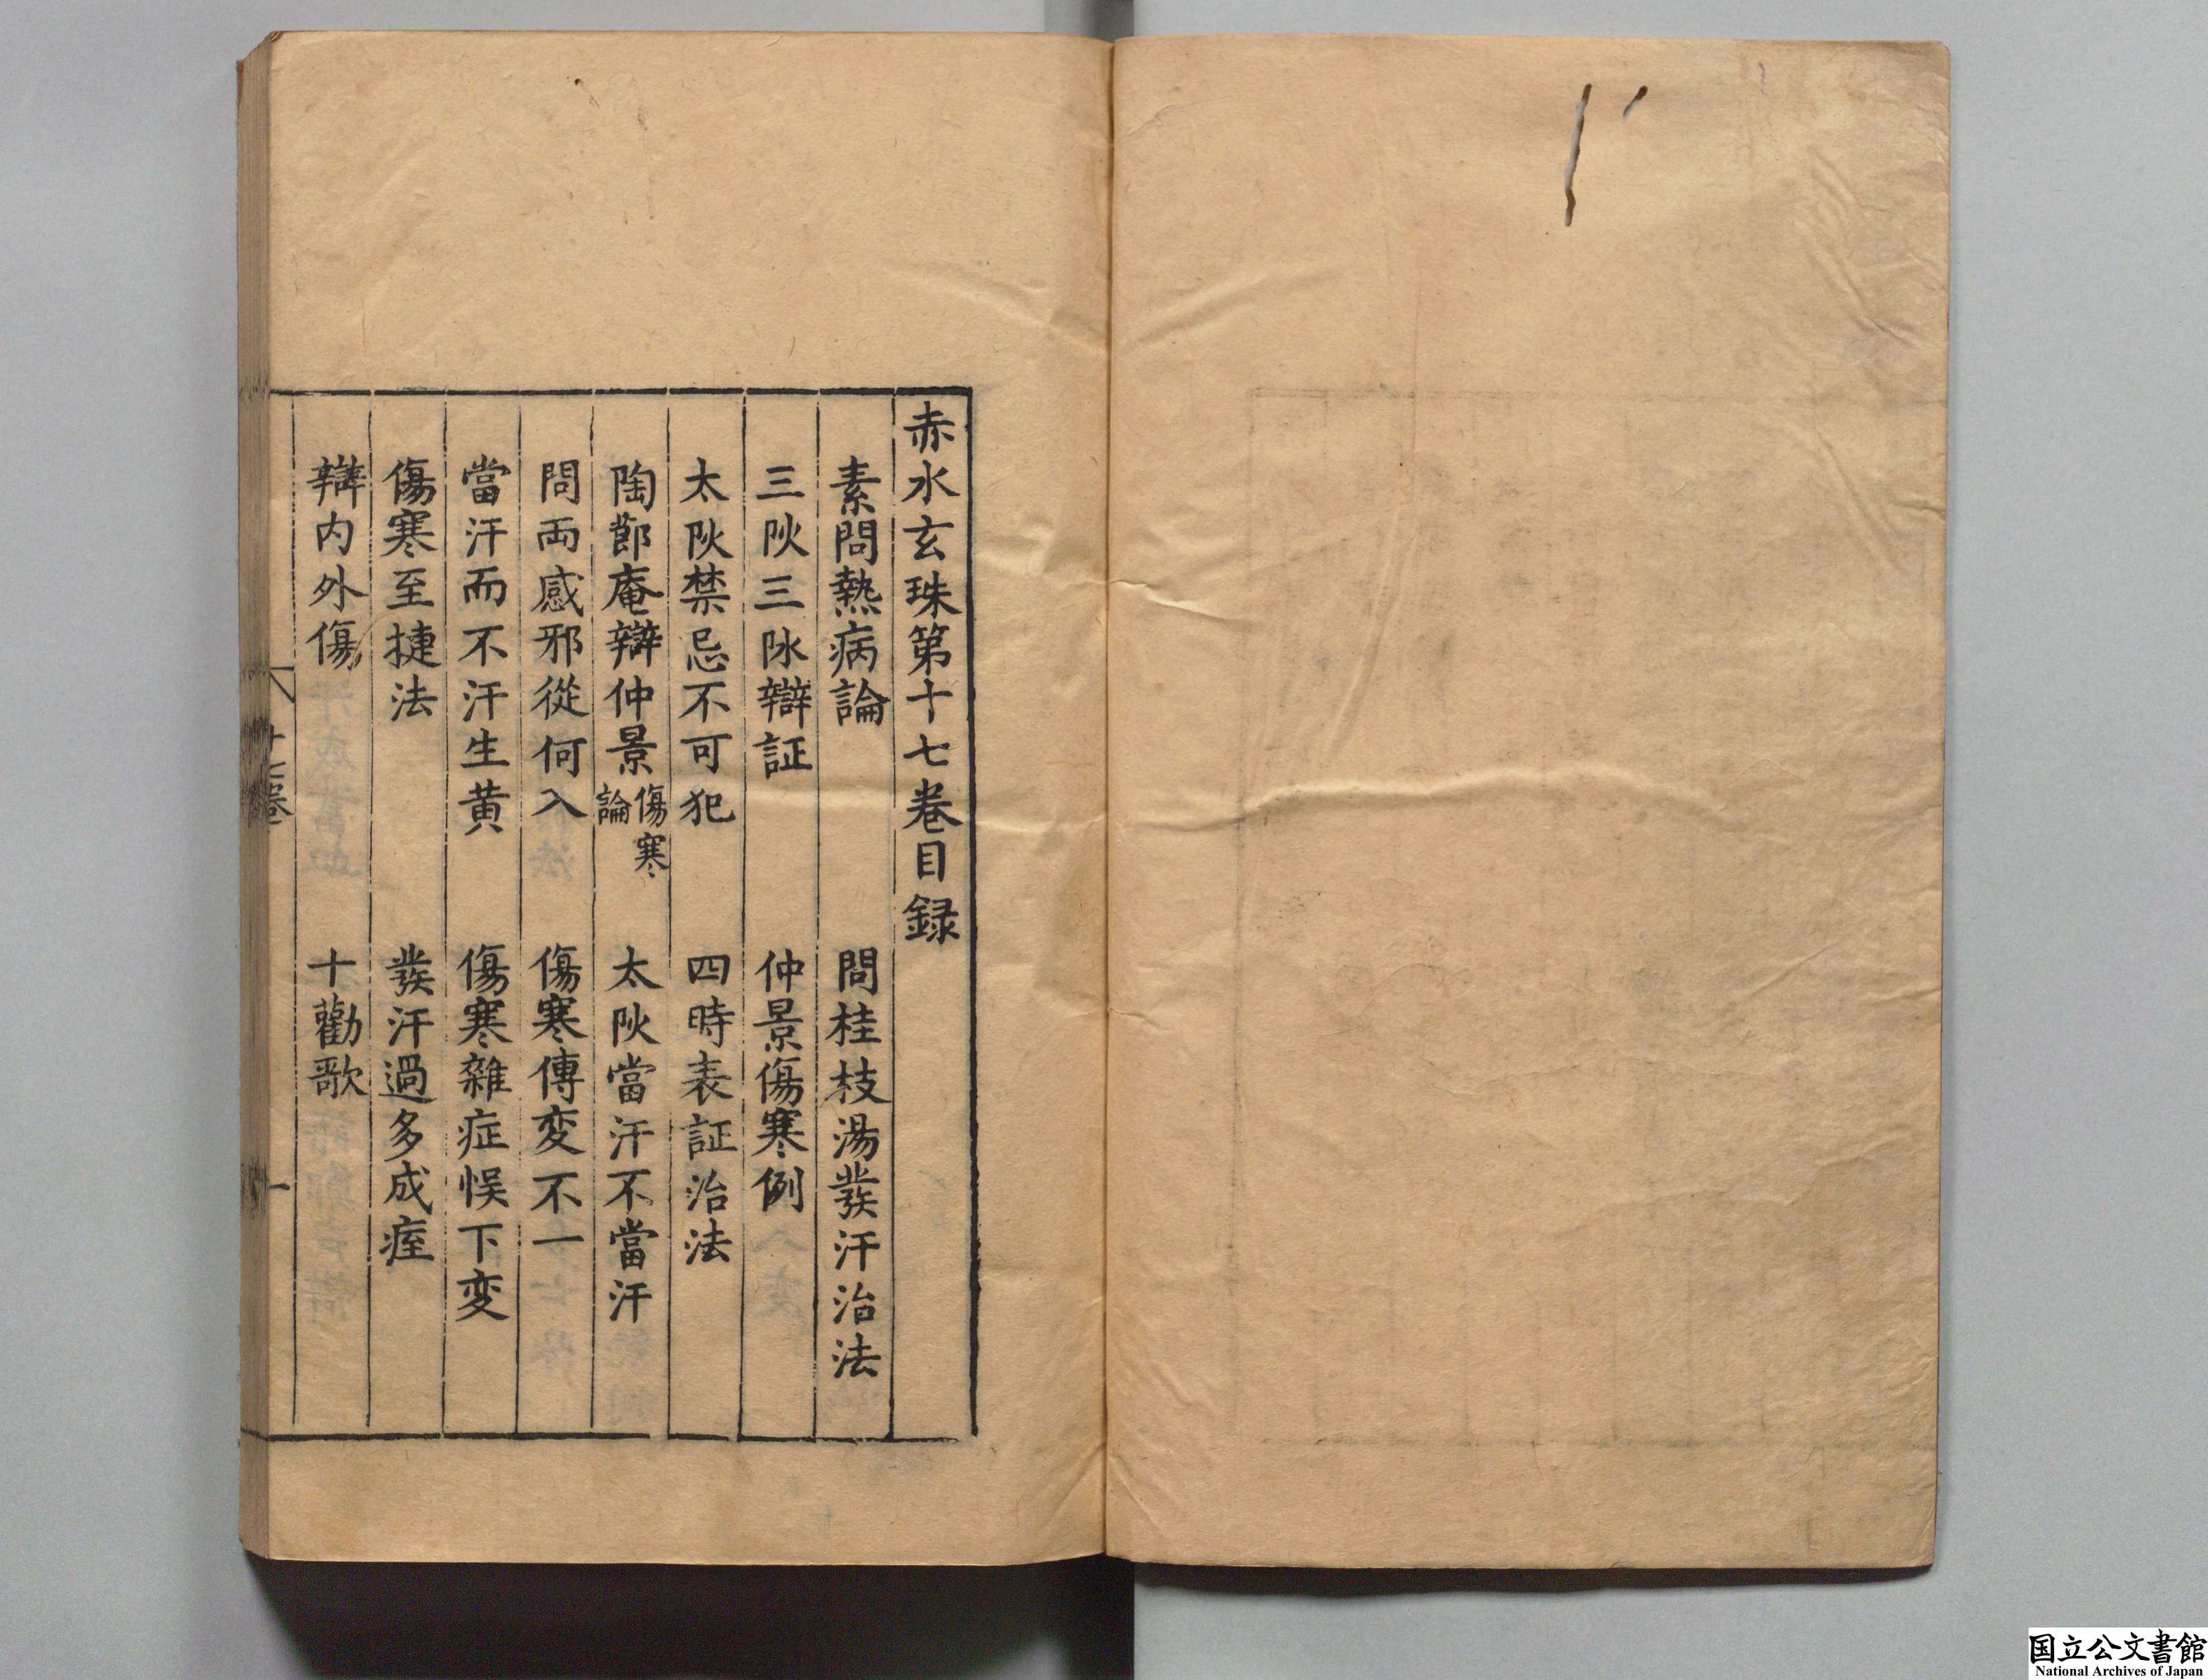 赤水玄珠第十七卷目録
素問熱病論　問桂枝湯發汗治法
三阦三阥辯証　仲景傷寒例
太阦禁忌不可犯　四時表証治法
陶莭庵辯仲景傷寒論　太阦當汗不當汗
問両感邪從何入　傷寒傳変不一
當汗而不汗生黄　傷寒雜症悞下変
傷寒至捷法　發汗過多成痓
辯内外傷　十勸歌
十七卷
一
国立公文書館
National Archives of Japan